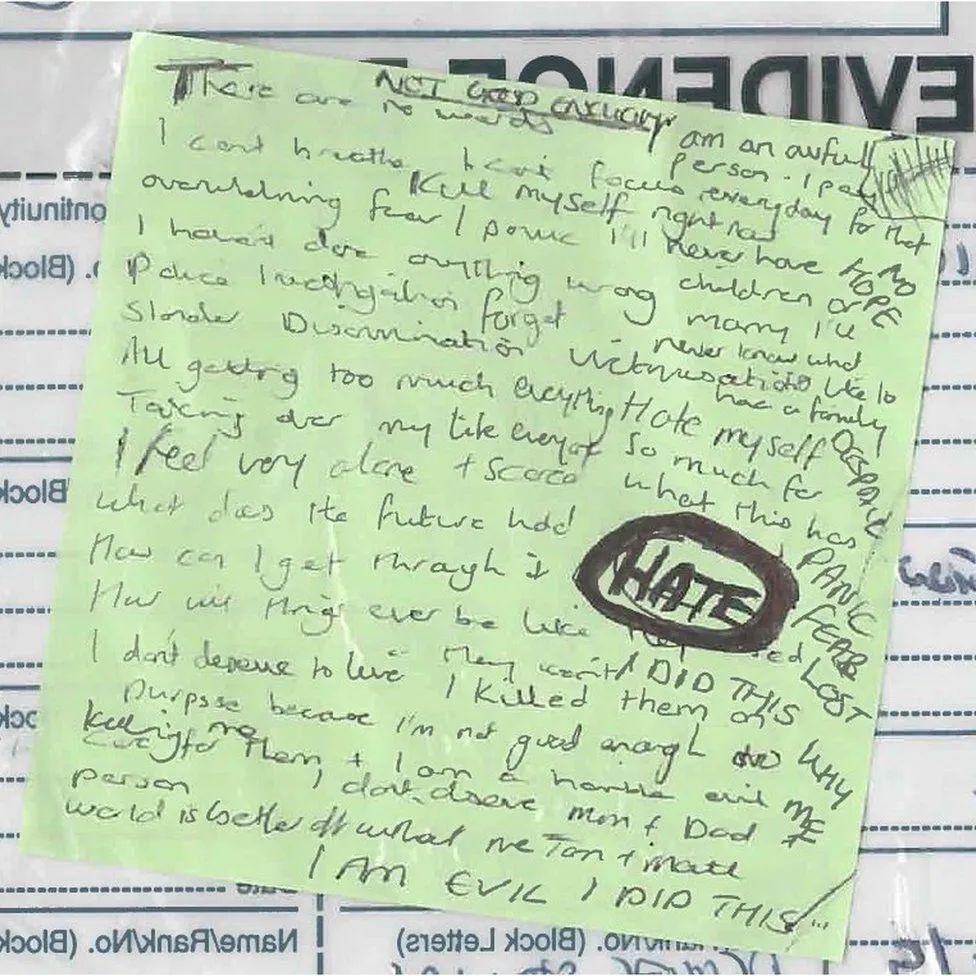 EVIDENCE
NOT GOOD ENOUGH
There are no words
I am an awful person. I pay everyday for that
I cant breathe I cant focus
Kill myself right now
overwhelming fear / panic
I'll never have children or marry I'll never know what
its like to have a family
NO HOPE
I haven't done anything wrong
Police Investigation forget
Slander Discrimination Victimisation
All getting too much everything
Hate myself so much for what this has
DESPAIR
Taking over my life everyday
I feel very alone + scared
What does the future hold
How can I get through it
HATE
PANIC
FEAR
LOST
How will things ever be like they used
I DID THIS
I don't deserve to live
They won't
I killed them on purpose because I'm not good enough to
care for them + I am a horrible evil person
killing me
WHY ME
I don't deserve mum + Dad
world is better off without me
Tom + Matt
I AM EVIL I DID THIS
(Block
(Block
Name/Rank/No. (Block
No. (Block Letters)